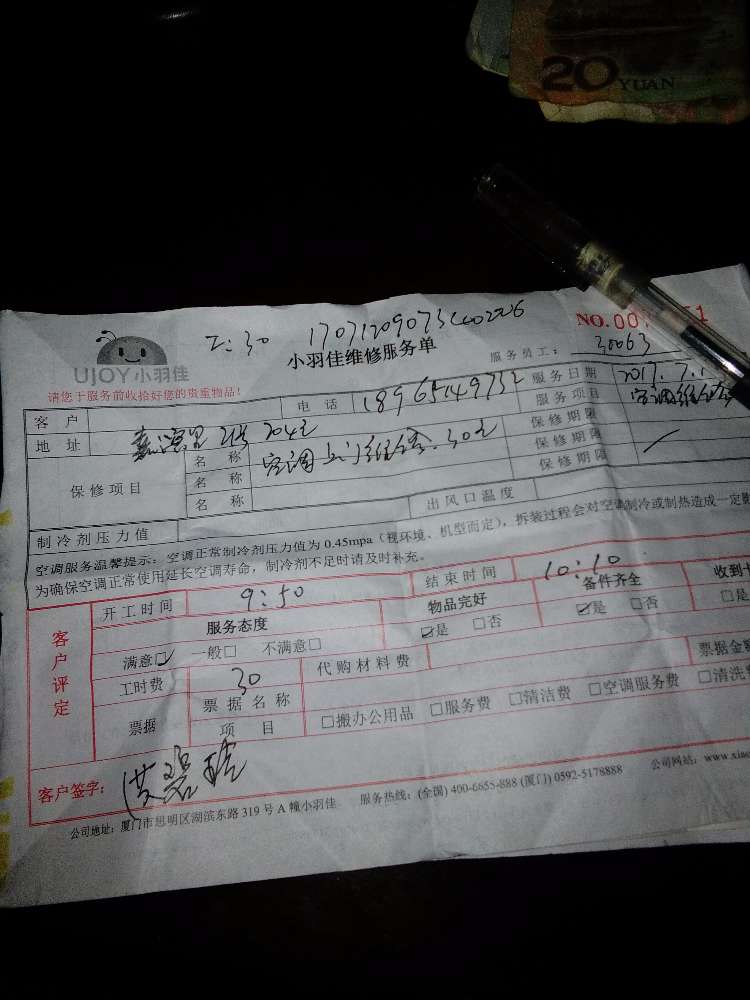 20 YUAN
工:30 17071209073
小羽佳维修服务单
NO.00
UJOY小羽佳
服务员工: 30063
请您于服务前收拾好您的贵重物品!
客 户
电 话 18965149732
服务日期 2017.7.1
地 址 2号204室
服务项目 空调维修
保修项目
名 称 空调上门维修.30元
保修期限
名 称
保修期限
名 称
保修期限
制冷剂压力值
出风口温度
空调服务温馨提示:空调正常制冷剂压力值为0.45mpa(视环境、机型而定),拆装过程会对空调制冷或制热造成一定影
为确保空调正常使用延长空调寿命,制冷剂不足时请及时补充。
客户评定
开工时间 9:50
结束时间 10:10
服务态度
物品完好
备件齐全
收到
满意☑ 一般□ 不满意□
☑是 □否
☑是 □否
□是
工时费 30
代购材料费
票据金
票据
票据名称
项 目
□搬办公用品 □服务费 □清洁费 □空调服务费 □清洗
客户签字:
公司地址:厦门市思明区湖滨东路319号A幢小羽佳 服务热线:(全国) 400-6655-888 (厦门) 0592-5178888 公司网站:www.xiao